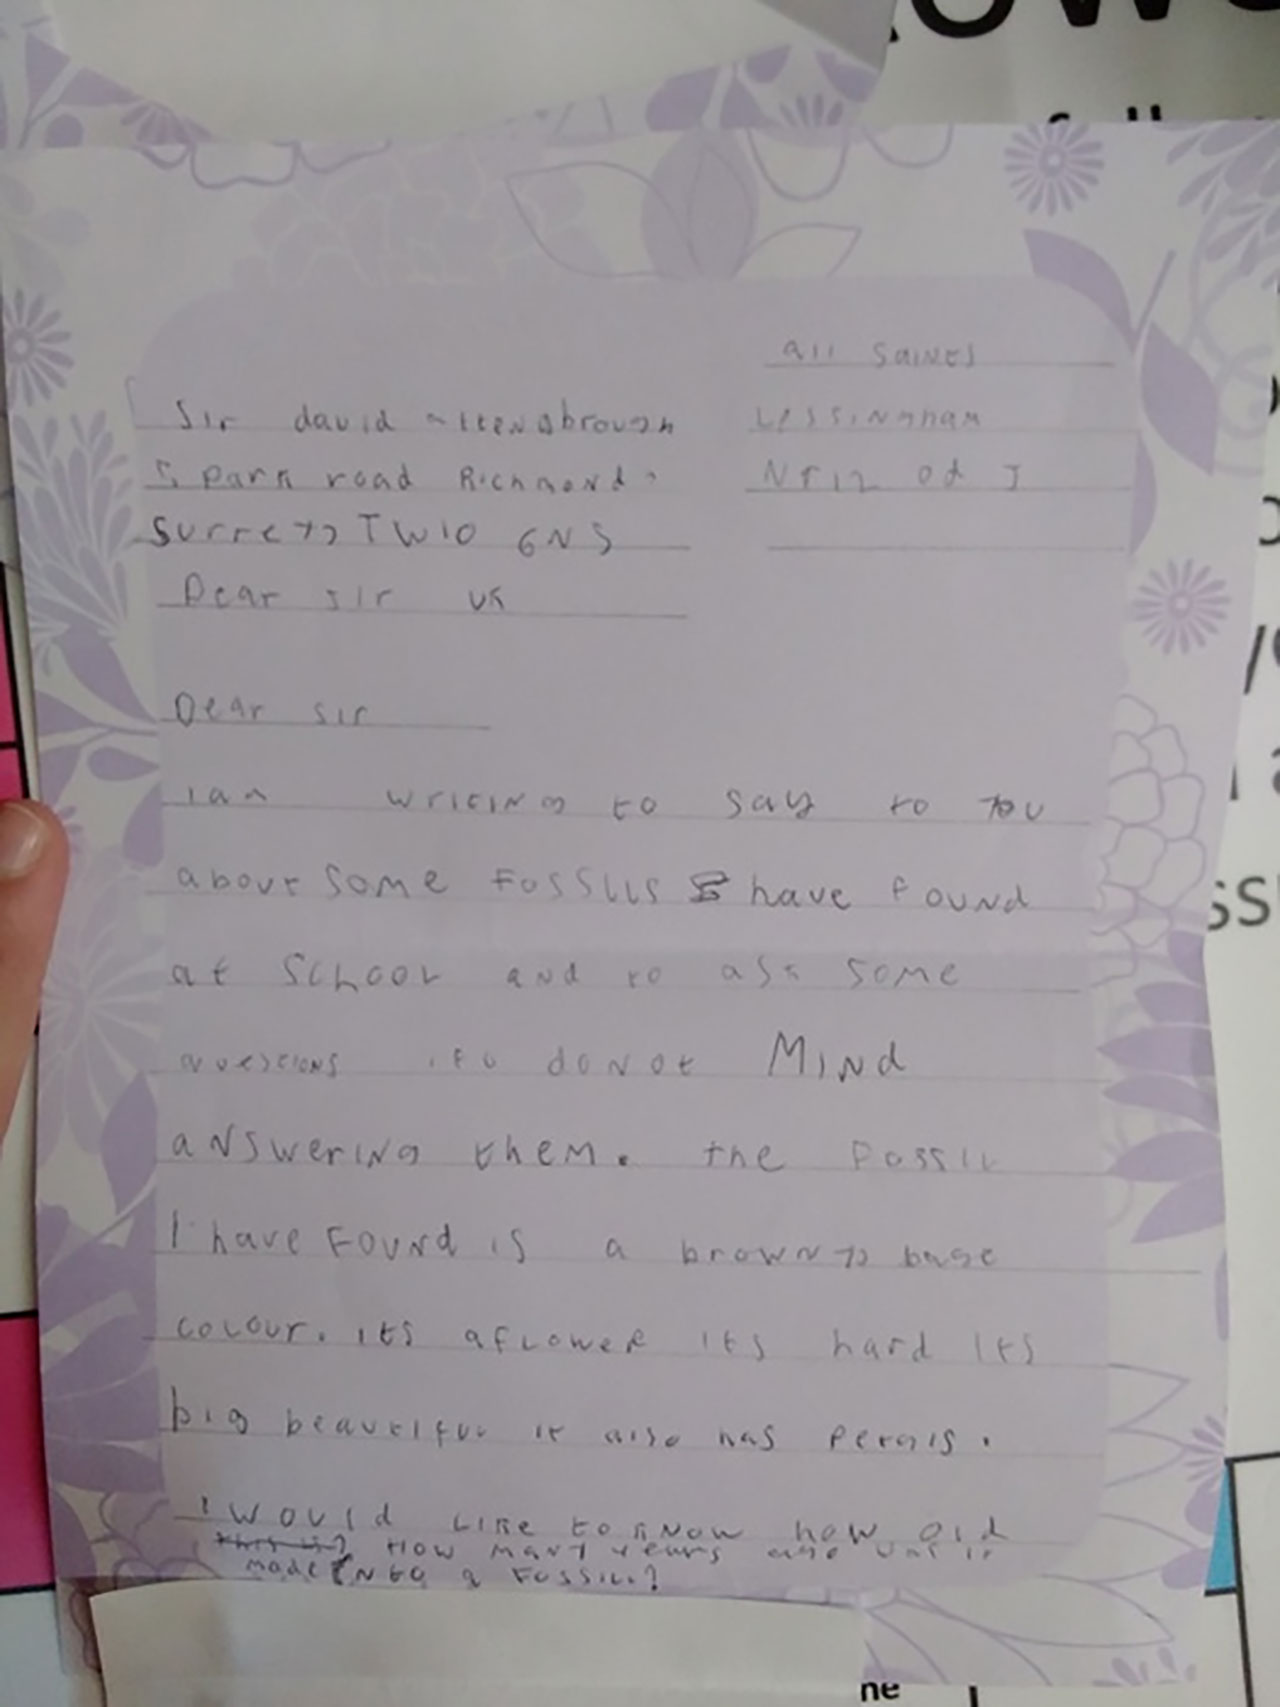 OWS
all saints
Sir david attenbrough
Lessingham
5 Park road Richmond,
NR12 0dJ
Surrey, TW10 6NS
Dear sir uk
Dear sir
I am writing to say to you
about some fossils I have found
at school and to ask some
questions if u do not Mind
answering them. the fossil
I have found is a browny bage
colour. its a flower its hard its
big beautiful it also has petals.
I would like to know how old
this is? How many years ago was it
made into a fossil?
ss
he